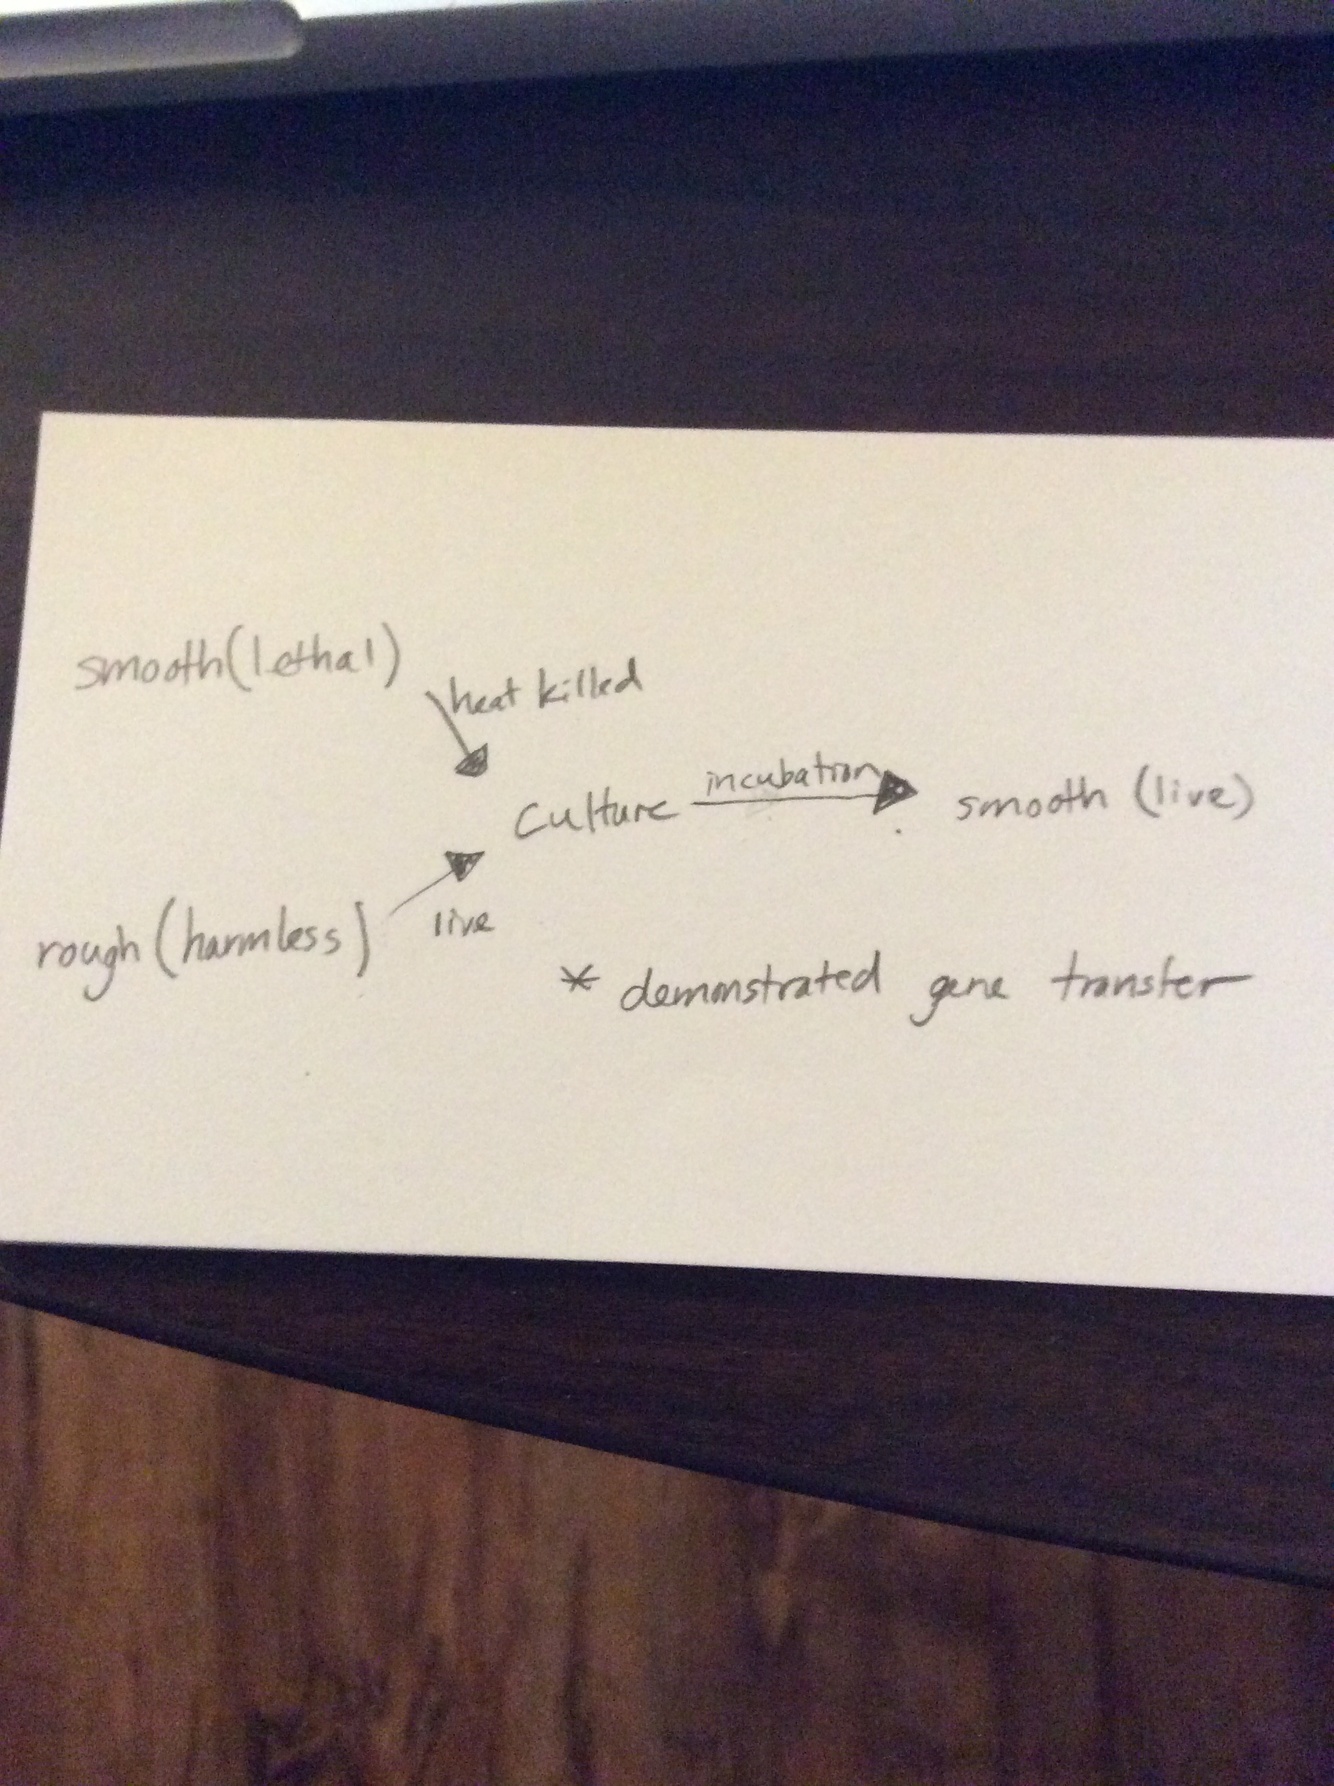 smooth (lethal)
heat killed
Culture incubation smooth (live)
rough (harmless) live
* demonstrated gene transfer